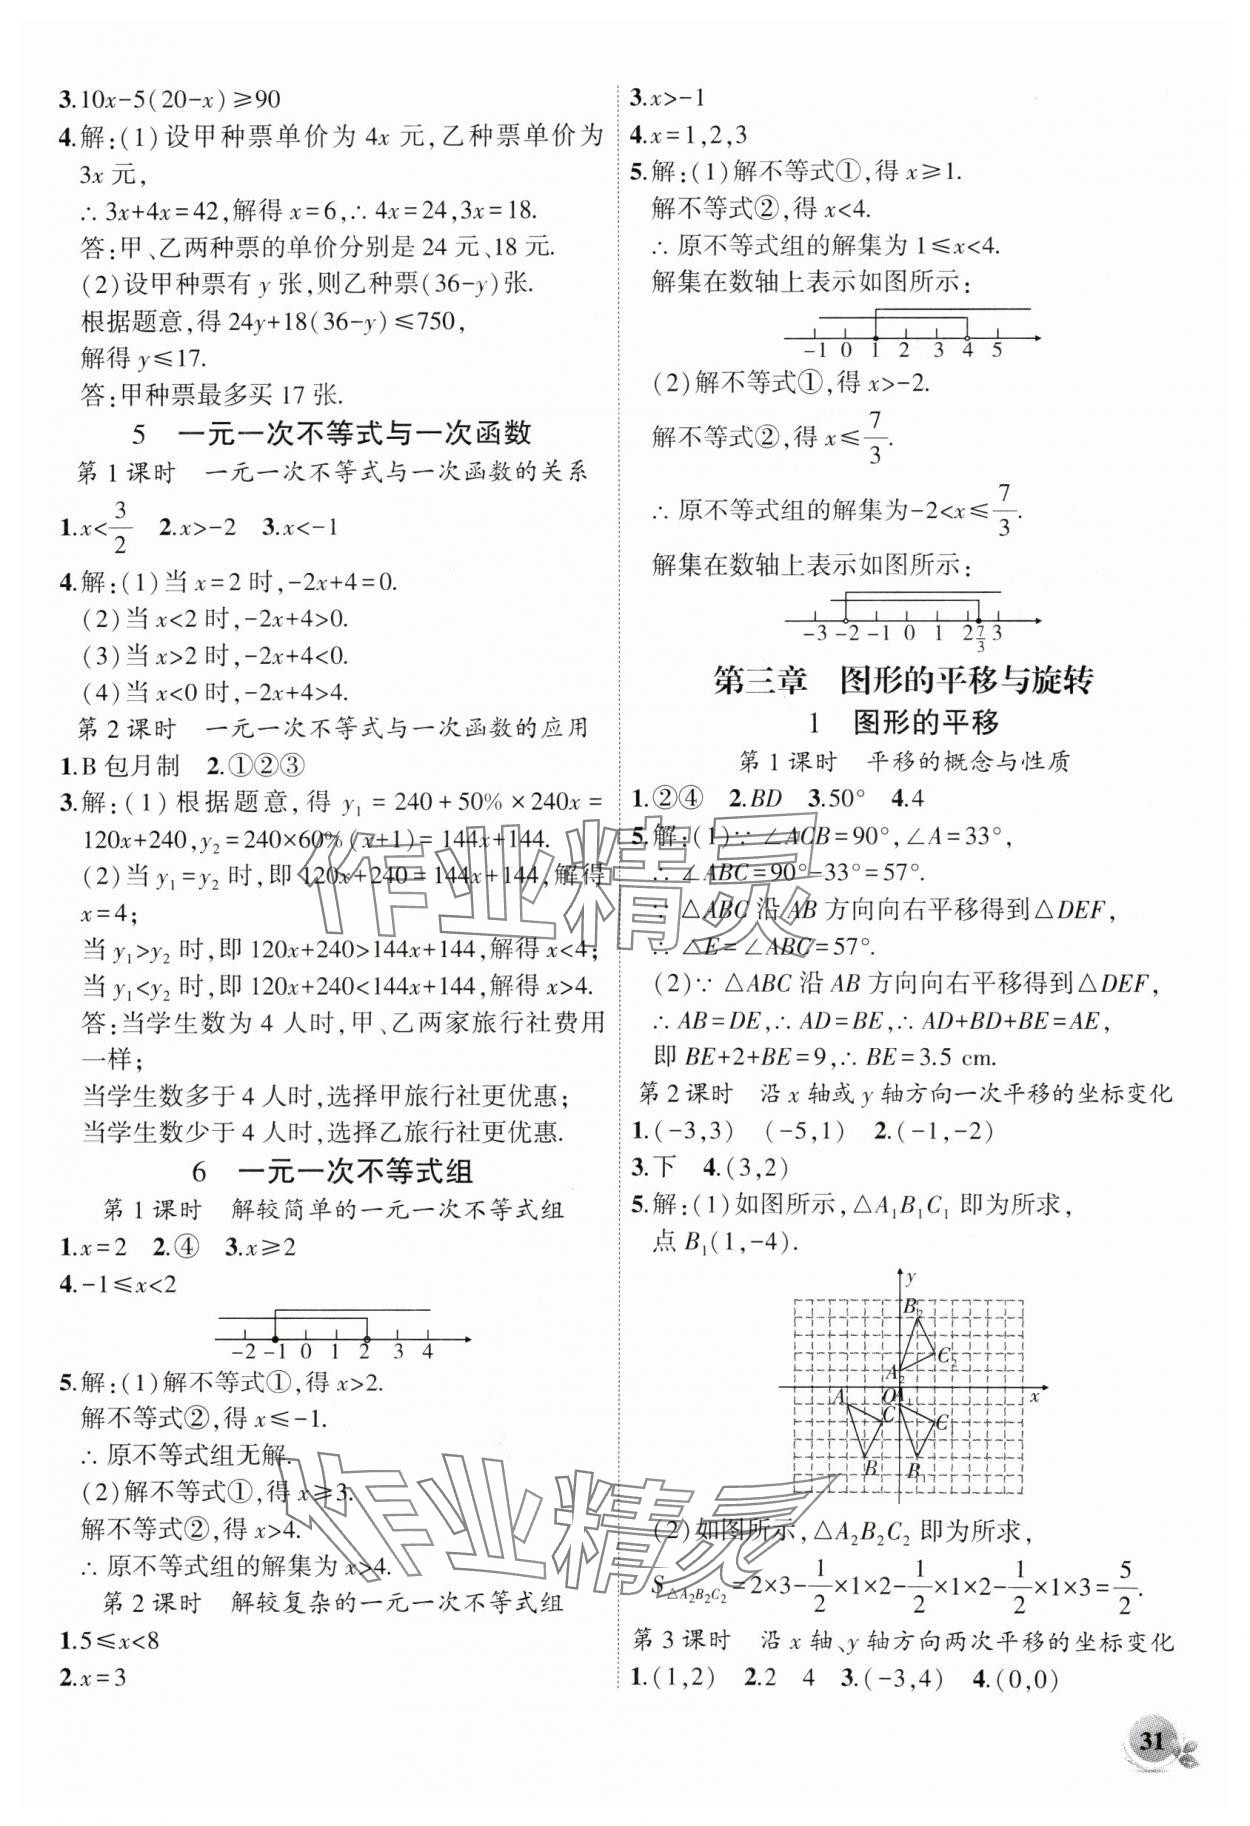 3.10x-5(20-x)≥90
4.解:(1)设甲种票单价为 4x 元,乙种票单价为
3x 元,
∴ 3x+4x=42,解得 x=6,∴ 4x=24,3x=18.
答:甲、乙两种票的单价分别是 24 元、18 元.
(2)设甲种票有 y 张,则乙种票(36-y)张.
根据题意,得 24y+18(36-y)≤750,
解得 y≤17.
答:甲种票最多买 17 张.
5 一元一次不等式与一次函数
第 1 课时 一元一次不等式与一次函数的关系
1.x<3/2 2.x>-2 3.x<-1
4.解:(1)当 x=2 时,-2x+4=0.
(2)当 x<2 时,-2x+4>0.
(3)当 x>2 时,-2x+4<0.
(4)当 x<0 时,-2x+4>4.
第 2 课时 一元一次不等式与一次函数的应用
1.B 包月制 2.①②③
3.解:(1)根据题意,得 y₁=240+50%×240x=
120x+240,y₂=240×60%(x+1)=144x+144.
(2)当 y₁=y₂ 时,即 120x+240=144x+144,解得
x=4;
当 y₁>y₂ 时,即 120x+240>144x+144,解得 x<4;
当 y₁<y₂ 时,即 120x+240<144x+144,解得 x>4.
答:当学生数为 4 人时,甲、乙两家旅行社费用
一样;
当学生数多于 4 人时,选择甲旅行社更优惠;
当学生数少于 4 人时,选择乙旅行社更优惠.
6 一元一次不等式组
第 1 课时 解较简单的一元一次不等式组
1.x=2 2.④ 3.x≥2
4.-1≤x<2
-2 -1 0 1 2 3 4
5.解:(1)解不等式①,得 x>2.
解不等式②,得 x≤-1.
∴ 原不等式组无解.
(2)解不等式①,得 x≥3.
解不等式②,得 x>4.
∴ 原不等式组的解集为 x>4.
第 2 课时 解较复杂的一元一次不等式组
1.5≤x<8
2.x=3
3.x>-1
4.x=1,2,3
5.解:(1)解不等式①,得 x≥1.
解不等式②,得 x<4.
∴ 原不等式组的解集为 1≤x<4.
解集在数轴上表示如图所示:
-1 0 1 2 3 4 5
(2)解不等式①,得 x>-2.
解不等式②,得 x≤7/3.
∴ 原不等式组的解集为-2<x≤7/3.
解集在数轴上表示如图所示:
-3 -2 -1 0 1 2 7/3 3
第三章 图形的平移与旋转
1 图形的平移
第 1 课时 平移的概念与性质
1.②④ 2.BD 3.50° 4.4
5.解:(1)∵ ∠ACB=90°,∠A=33°,
∴ ∠ABC=90°-33°=57°.
∵ △ABC 沿 AB 方向向右平移得到△DEF,
∴ ∠E=∠ABC=57°.
(2)∵ △ABC 沿 AB 方向向右平移得到△DEF,
∴ AB=DE,∴ AD=BE,∴ AD+BD+BE=AE,
即 BE+2+BE=9,∴ BE=3.5 cm.
第 2 课时 沿 x 轴或 y 轴方向一次平移的坐标变化
1.(-3,3) (-5,1) 2.(-1,-2)
3.下 4.(3,2)
5.解:(1)如图所示,△A₁B₁C₁ 即为所求,
点 B₁(1,-4).
y
B₂
C₂
A₂
O A₁ x
A C C₁
B B₁
(2)如图所示,△A₂B₂C₂ 即为所求,
S△A₂B₂C₂=2×3-1/2×1×2-1/2×1×2-1/2×1×3=5/2.
第 3 课时 沿 x 轴、y 轴方向两次平移的坐标变化
1.(1,2) 2.2 4 3.(-3,4) 4.(0,0)
31
作业精灵
作业精灵